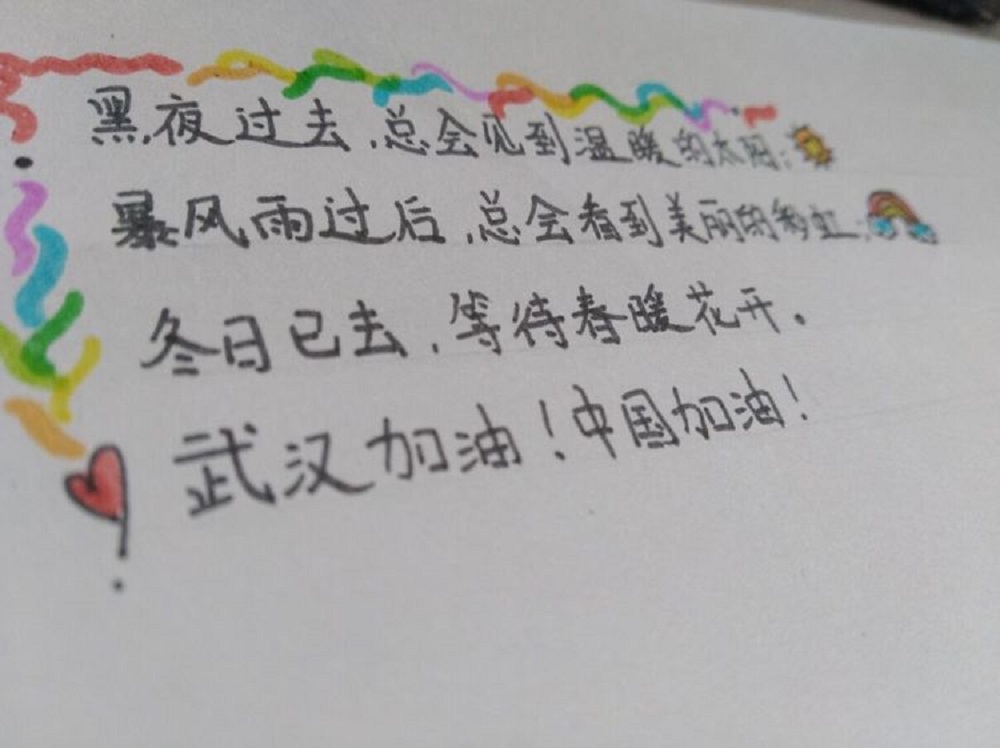 黑夜过去,总会见到温暖的太阳;
暴风雨过后,总会看到美丽的彩虹;
冬日已去,等待春暖花开。
武汉加油!中国加油!